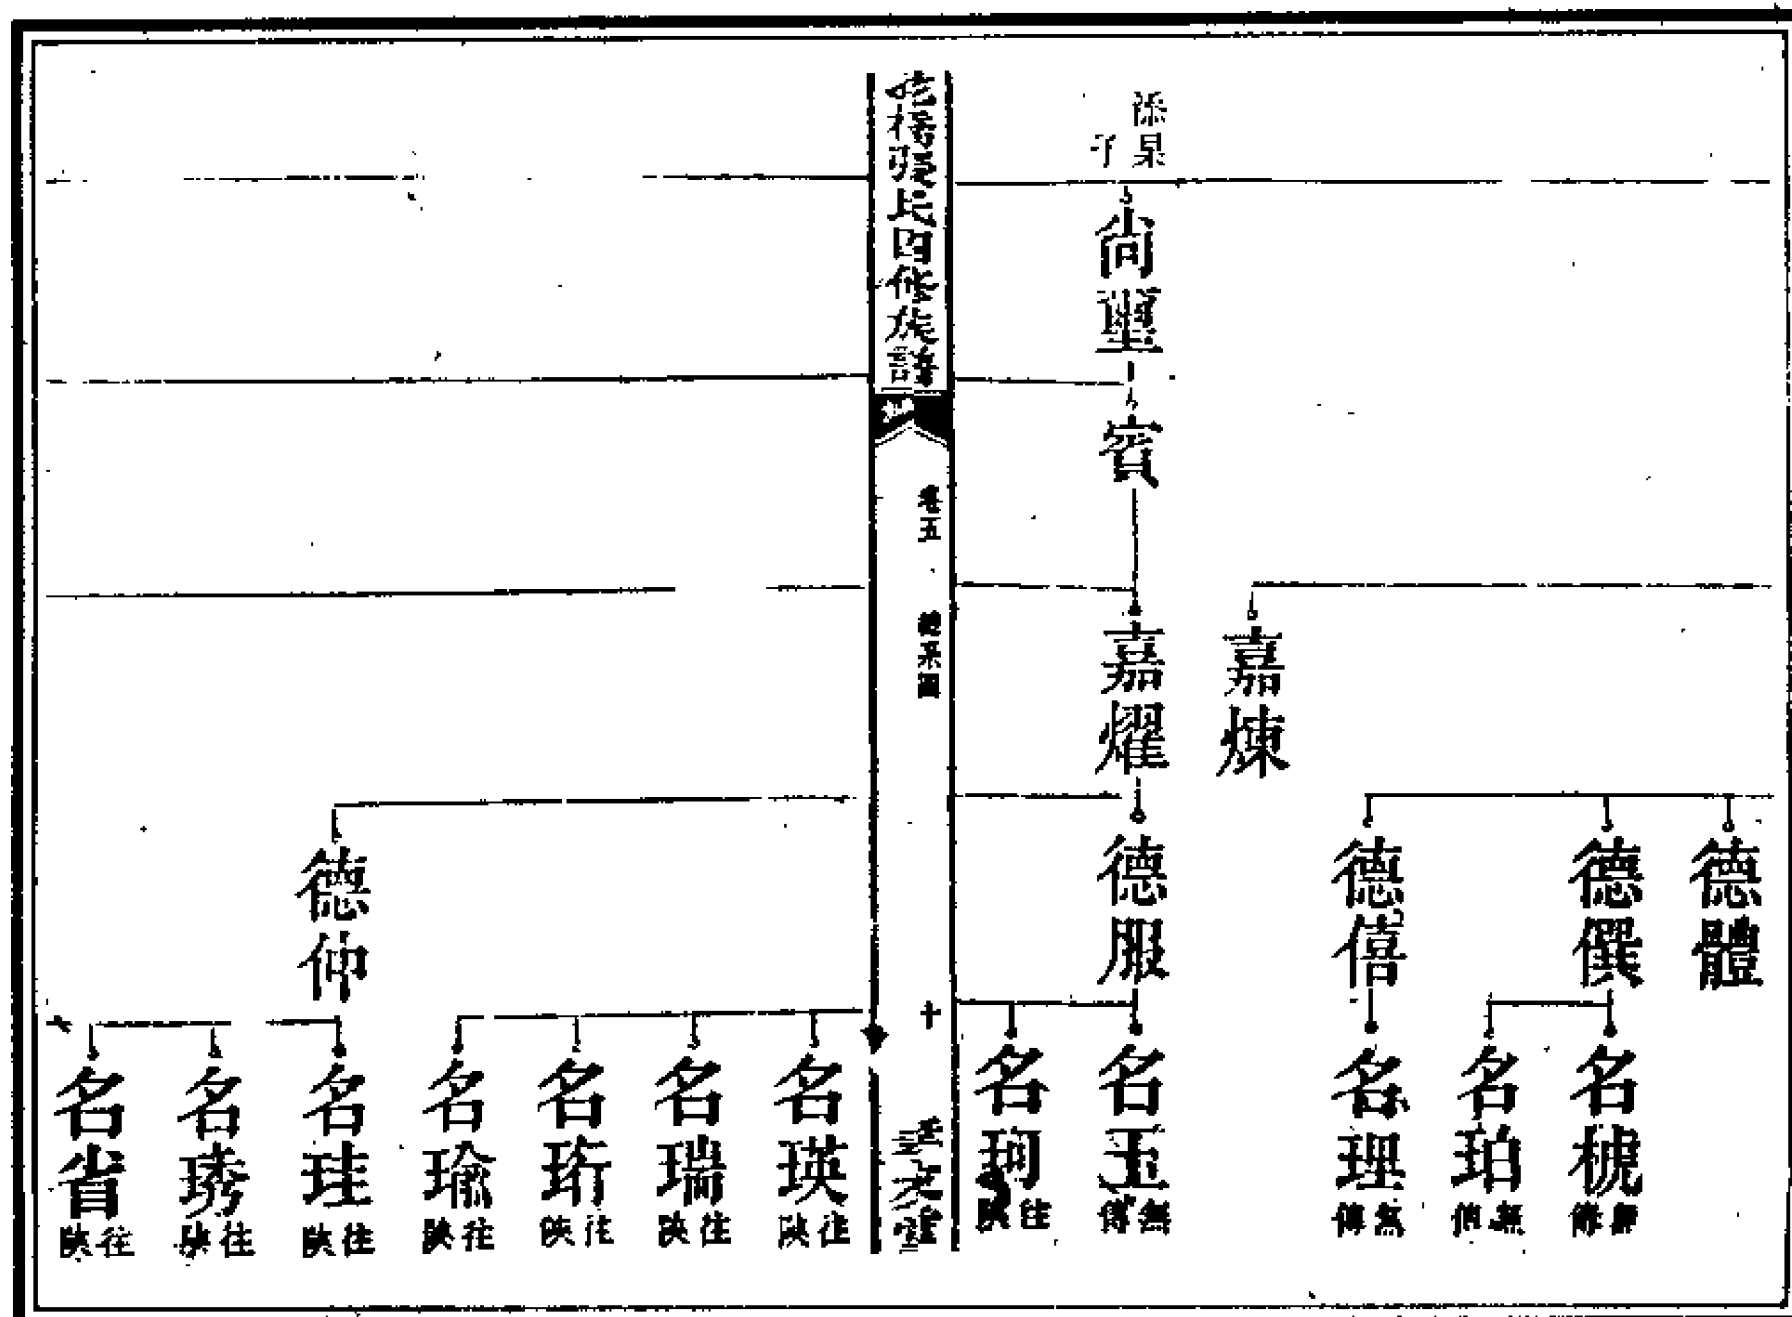 添杲子
尚璽
賓
嘉煉
嘉燿
德體
德僎
德僖
德服
德仰
名槐
無傳
名珀
無傳
名理
無傳
名玉
無傳
名珂
往陝
氏四修族譜
卷五
總系圖
十
名瑛
往陝
名瑞
往陝
名珩
往陝
名瑜
往陝
名珪
往陝
名琇
往陝
名省
往陝